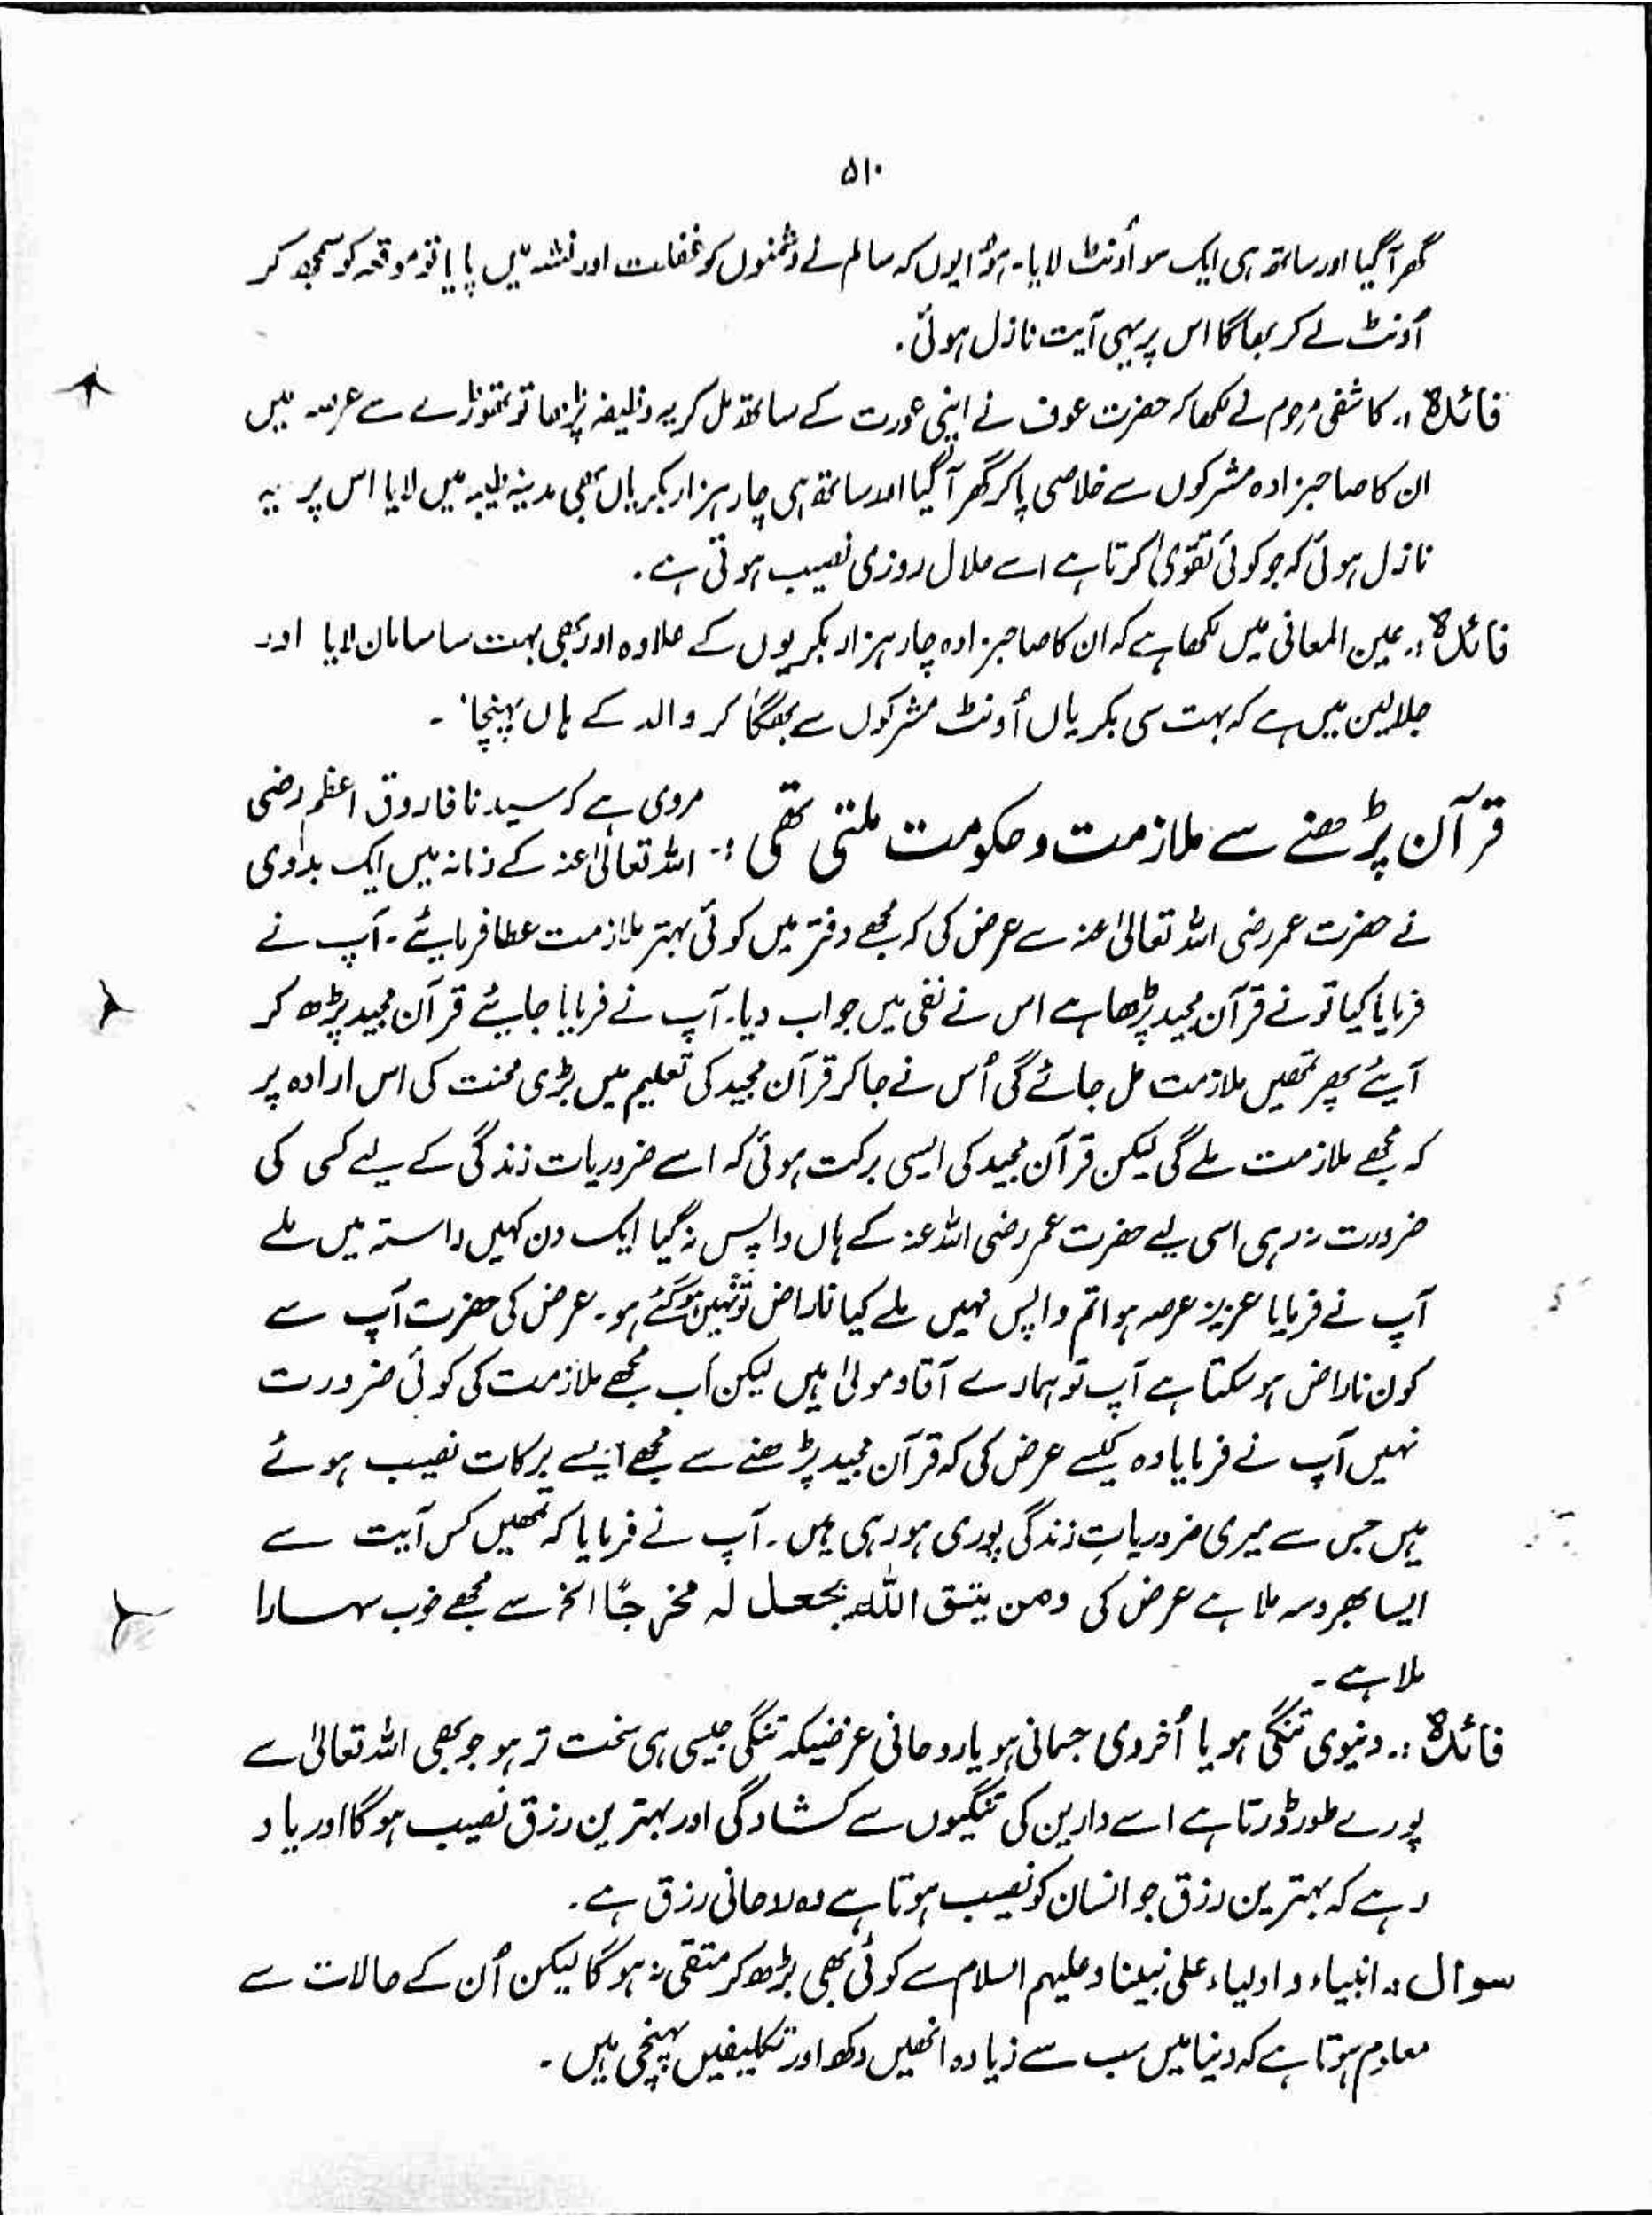 ۵۱۰
گھر آگیا اور ساتھ ہی ایک سو اُونٹ لایا۔ ہوُا یوں کہ سالم نے دشمنوں کو غفلت اور نشہ میں پایا تو موقعہ کو سمجھ کر
اُونٹ لے کر بھاگا اس پر یہی آیت نازل ہوئی۔
فائدہ :۔ کاشفی مرحوم نے لکھا کہ حضرت عوف نے اپنی عورت کے ساتھ مل کر یہ وظیفہ پڑھا تو تھوڑے سے عرصہ میں
ان کا صاحبزادہ مشرکوں سے خلاصی پاکر گھر آگیا اور ساتھ ہی چار ہزار بکریاں بھی مدینہ طیبہ میں لایا اس پر یہ
نازل ہوئی کہ جو کوئی تقویٰ کرتا ہے اسے حلال روزی نصیب ہوتی ہے۔
فائدہ :۔ عین المعانی میں لکھا ہے کہ ان کا صاحبزادہ چار ہزار بکریوں کے علاوہ اور بھی بہت سا سامان لایا اور
جلالین میں ہے کہ بہت سی بکریاں اُونٹ مشرکوں سے بھگا کر والد کے ہاں پہنچا۔
قرآن پڑھنے سے ملازمت و حکومت ملتی تھی :۔ مروی ہے کہ سیدنا فاروق اعظم رضی
اللہ تعالیٰ عنہ کے زمانہ میں ایک بدوی
نے حضرت عمر رضی اللہ تعالیٰ عنہ سے عرض کی کہ مجھے دفتر میں کوئی بہتر ملازمت عطا فرمایئے۔ آپ نے
فرمایا کیا تو نے قرآن مجید پڑھا ہے اس نے نفی میں جواب دیا۔ آپ نے فرمایا جایئے قرآن مجید پڑھ کر
آیئے پھر تمھیں ملازمت مل جائے گی اُس نے جاکر قرآن مجید کی تعلیم میں بڑی محنت کی اس ارادہ پر
کہ مجھے ملازمت ملے گی لیکن قرآن مجید کی ایسی برکت ہوئی کہ اسے ضروریات زندگی کے لیے کسی کی
ضرورت نہ رہی اسی لیے حضرت عمر رضی اللہ عنہ کے ہاں واپس نہ گیا ایک دن کہیں راستہ میں ملے
آپ نے فرمایا عزیز عرصہ ہوا تم واپس نہیں ملے کیا ناراض تو نہیں ہو گئے ہو۔ عرض کی حضرت آپ سے
کون ناراض ہو سکتا ہے آپ تو ہمارے آقا و مولیٰ ہیں لیکن اب مجھے ملازمت کی کوئی ضرورت
نہیں آپ نے فرمایا وہ کیسے عرض کی کہ قرآن مجید پڑھنے سے مجھے ایسے برکات نصیب ہوئے
ہیں جس سے میری ضروریاتِ زندگی پوری ہو رہی ہیں۔ آپ نے فرمایا کہ تمھیں کس آیت سے
ایسا بھروسہ ملا ہے عرض کی ومن یتق اللہ یجعل لہ مخرجًا الخ سے مجھے خوب سہارا
ملا ہے۔
فائدہ :۔ دنیوی تنگی ہو یا اُخروی جسمانی ہو یا روحانی غرضیکہ تنگی جیسی ہی سخت تر ہو جو بھی اللہ تعالیٰ سے
پورے طور ڈرتا ہے اسے دارین کی تنگیوں سے کشادگی اور بہترین رزق نصیب ہوگا اور یاد
رہے کہ بہترین رزق جو انسان کو نصیب ہوتا ہے وہ روحانی رزق ہے۔
سوال :۔ انبیاء و اولیاء علی نبینا و علیہم السلام سے کوئی بھی بڑھ کر متقی نہ ہوگا لیکن اُن کے حالات سے
معلوم ہوتا ہے کہ دنیا میں سب سے زیادہ انھیں دکھ اور تکلیفیں پہنچی ہیں۔